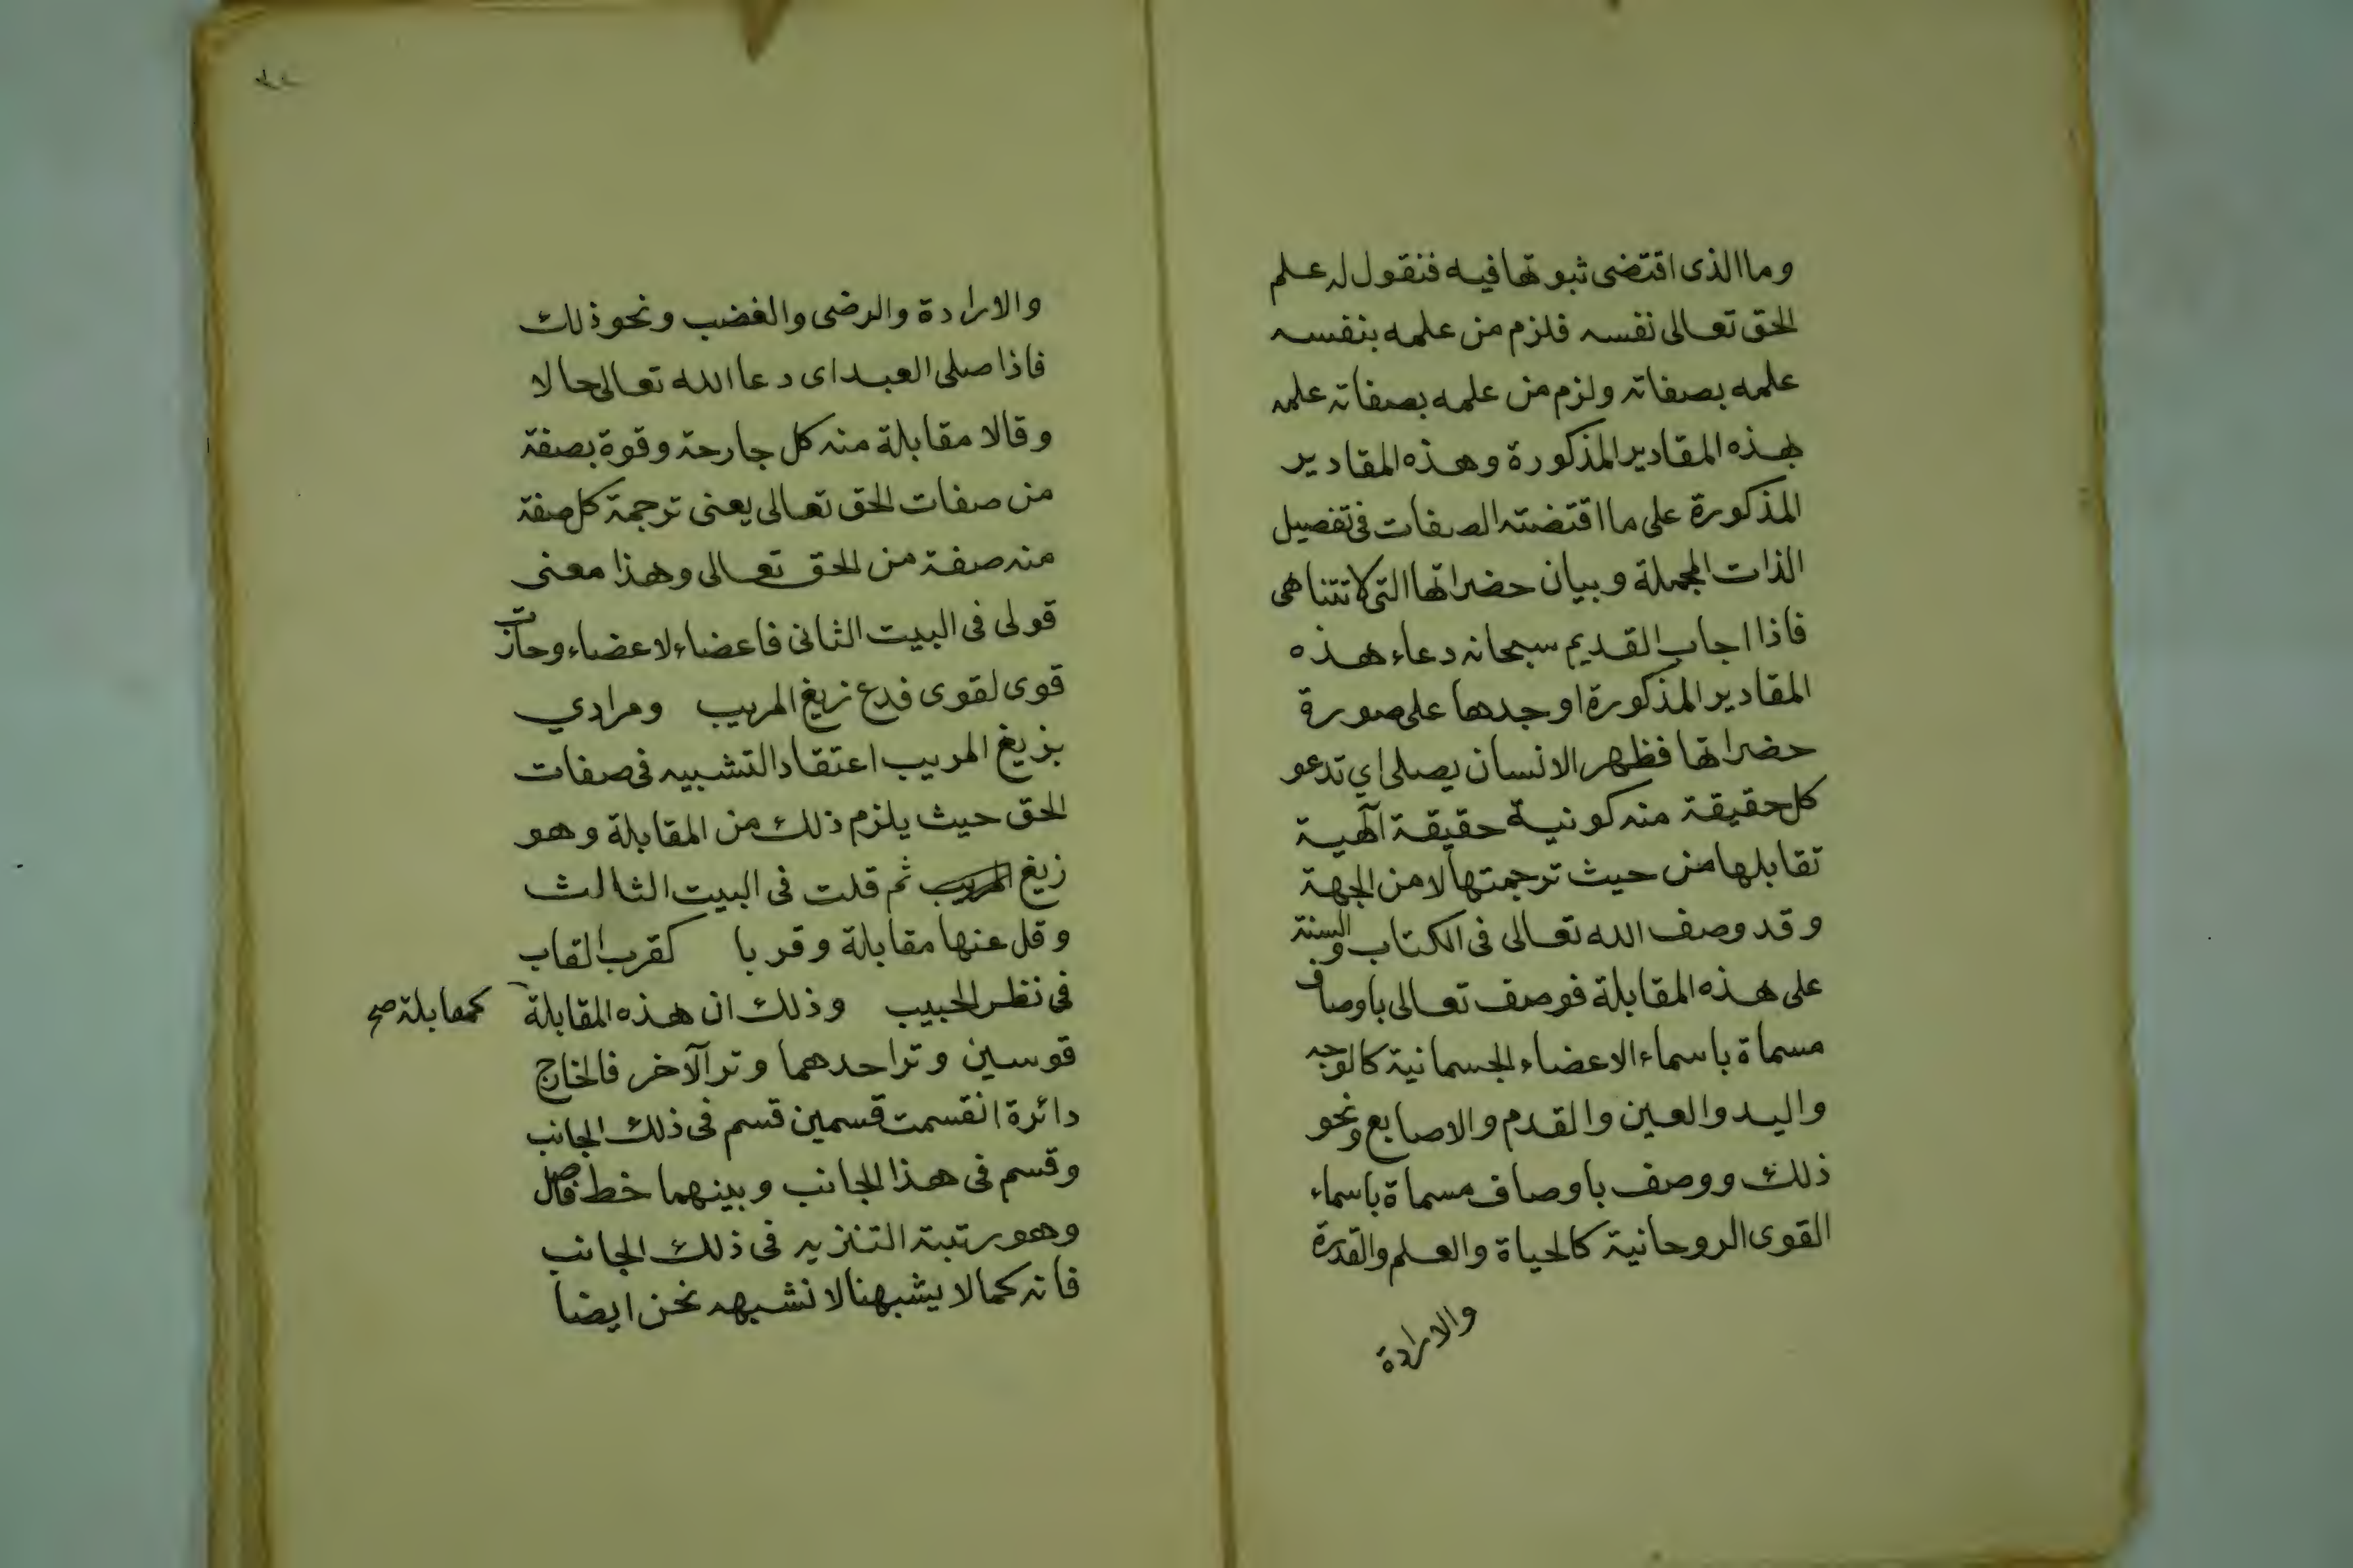 وما الذى اقتضى ثبوتها فيه فنقول له علم
الحق تعالى نفسه فلزم من علمه بنفسه
علمه بصفاته ولزم من علمه بصفاته علمه
بهذه المقادير المذكورة وهذه المقادير
المذكورة على ما اقتضته الصفات فى تفصيل
الذات المجملة وبيان حضراتها التى لا تتناهى
فاذا اجاب القديم سبحانه دعاء هذه
المقادير المذكورة اوجدها على صورة
حضراتها فظهر الانسان يصلى اي تدعو
كل حقيقة منه كونية حقيقة آلهية
تقابلها من حيث ترجمتها لا من الجهة
وقد وصف الله تعالى فى الكتاب والسنة
على هذه المقابلة فوصف تعالى باوصاف
مسماة باسماء الاعضاء الجسمانية كالوجه
واليد والعين والقدم والاصابع ونحو
ذلك ووصف باوصاف مسماة باسماء
القوى الروحانية كالحياة والعلم والقدرة
والارادة
والارادة والرضى والغضب ونحو ذلك
فاذا صلى العبد اى دعا الله تعالى حالا
وقالا مقابلة منه كل جارحة وقوة بصفة
من صفات الحق تعالى يعنى ترجمة كل صفة
منه صفة من الحق تعالى وهذا معنى
قولى فى البيت الثانى فاعضاء لاعضاء وحازت
قوى لقوى فدع زيغ المريب ومرادي
بزيغ المريب اعتقاد التشبيه فى صفات
الحق حيث يلزم ذلك من المقابلة وهو
زيغ المريب ثم قلت فى البيت الثالث
وقل عنها مقابلة وقربا كقرب القاب
فى نظر الحبيب وذلك ان هذه المقابلة كمقابلة صح
قوسين وتر احدهما وتر الآخر فالخارج
دائرة انقسمت قسمين قسم فى ذلك الجانب
وقسم فى هذا الجانب وبينهما خط فاصل
وهو رتبة التنزيه فى ذلك الجانب
فانه كما لا يشبهنا لا نشبهه نحن ايضا